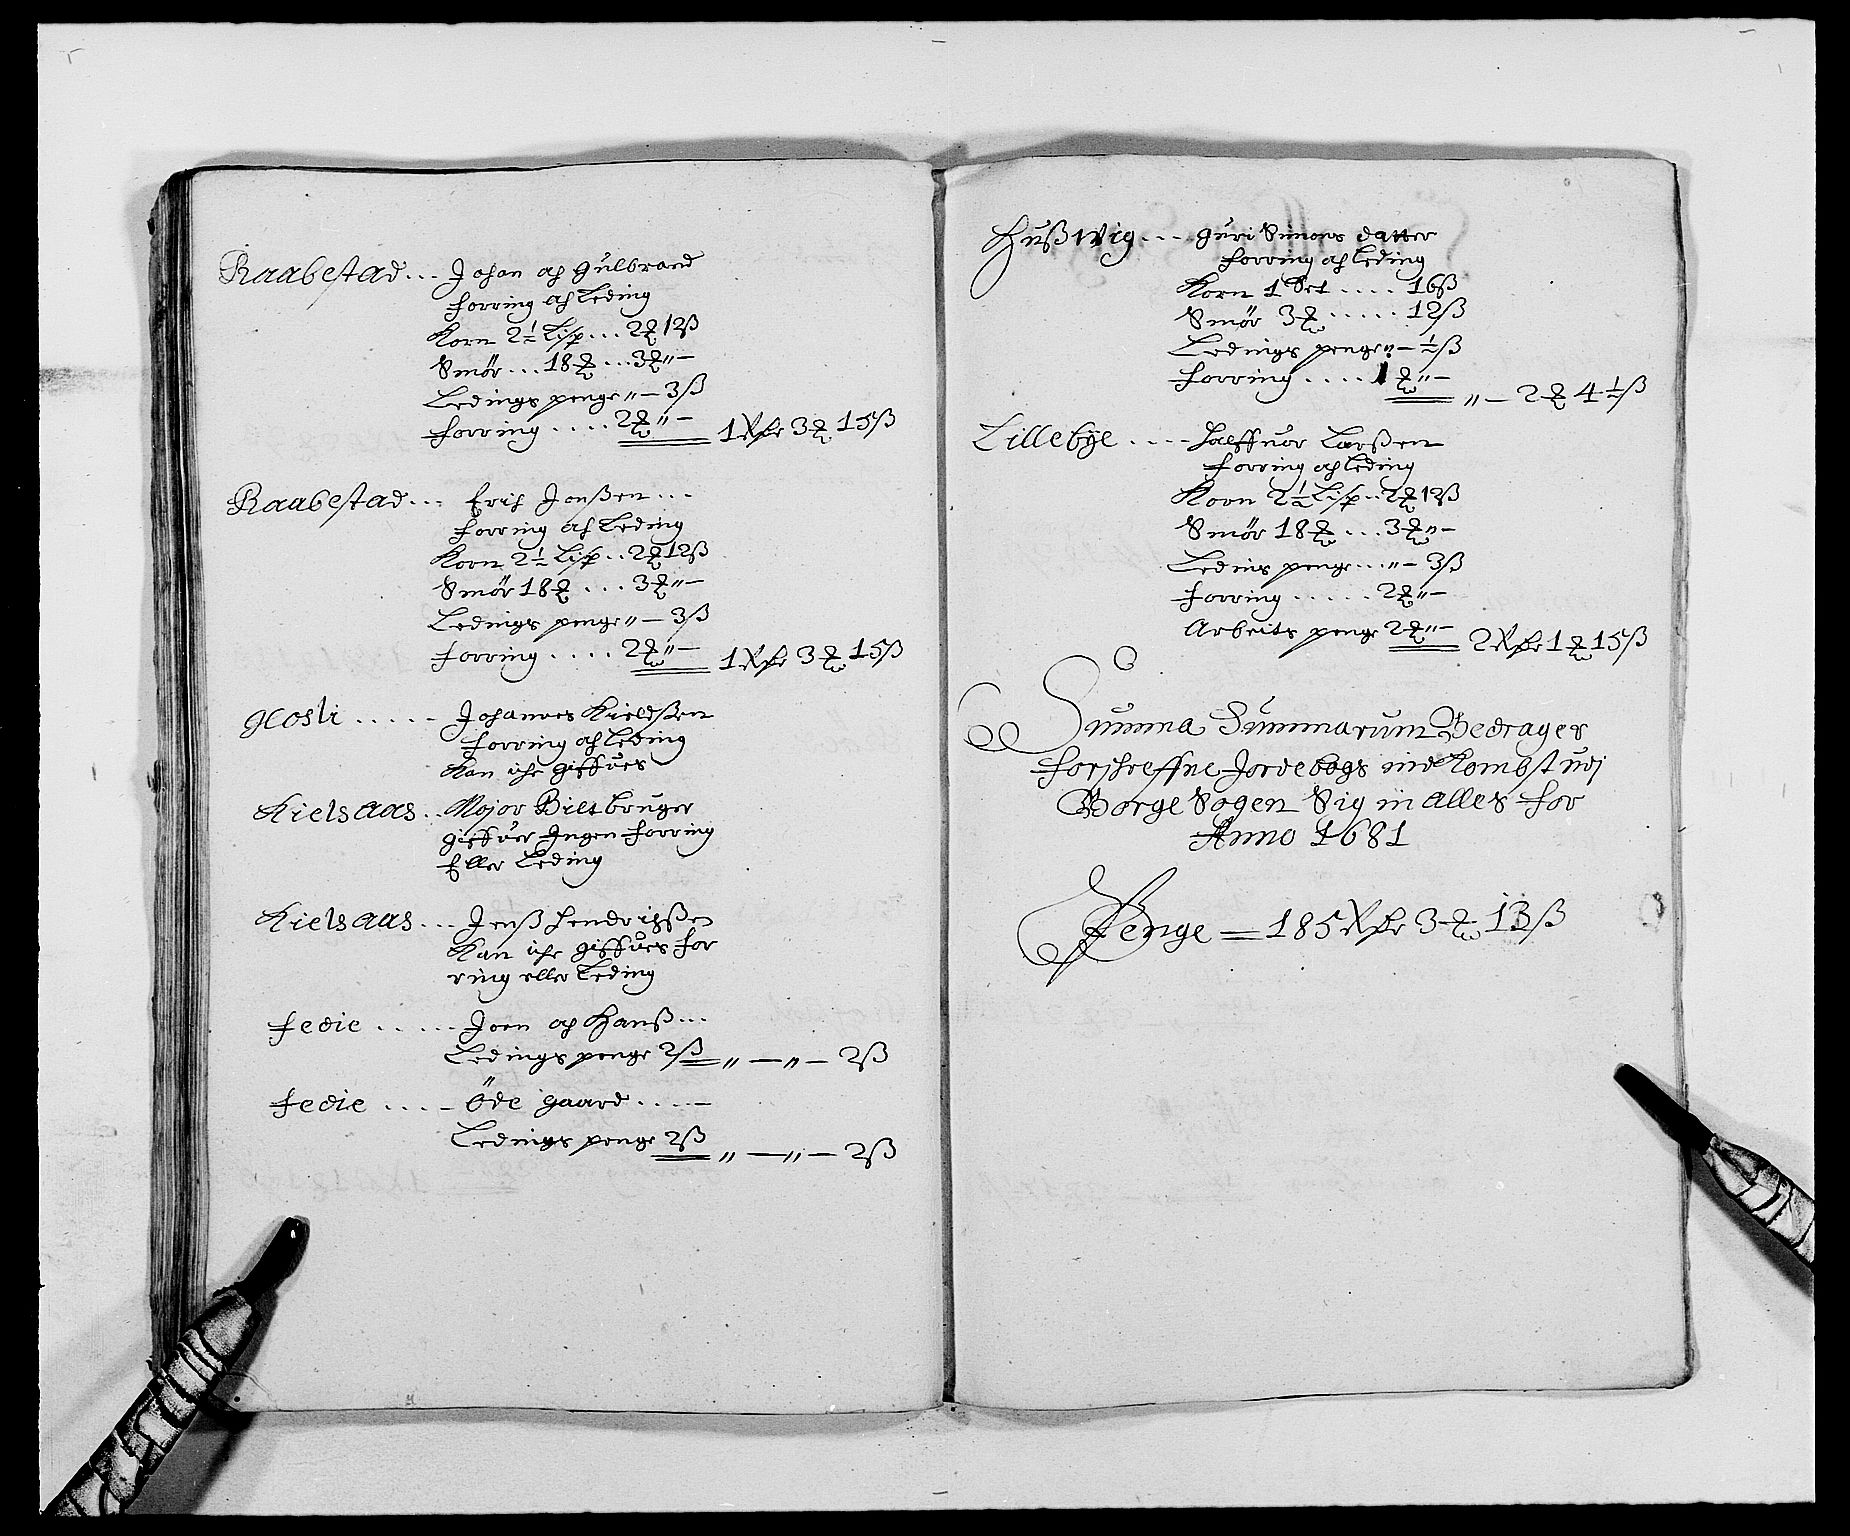 Raabestad... Johan och Gulbrand
forring och Leding
Korn 2½ Lisp... 2 ₻ 12ß
Smör... 18 ₻... 3 ₻ „ –
Ledings penge „ – 3ß
forring .... 2 ₻ „ – 1 Rdr 3 ₻ 15ß
Raabestad... Erich Jonßen...
forring och Leding
Korn 2½ Lisp.. 2 ₻ 12ß
Smör 18 ₻ ... 3 ₻ „ –
Ledings penge „ – 3ß
forring .... 2 ₻ „ – 1 Rdr 3 ₻ 15ß
Glosli ..... Johannes Kieldßen
forring och Leding
Kan iche giffues
Kielsaas.. Major Bilt bruger
giffuer Ingen forring
Eller Leding
Kielsaas... Jenß Hendrichßen
Kan iche giffues for
ring eller Leding
fedie ..... Joen och Hanß...
Ledings penge 2ß „ – „ – 2ß
fedie .... Öde gaard....
Ledings penge 2ß „ – „ – 2ß
Hußwig... Guri Simons datter
forring och Leding
Korn 1 Set .... 16ß
Smör 3 ₻ ..... 12ß
Ledings penge „ – ½ß
forring .... 1 ₻ „ – „ – 2 ₻ 4½ß
Lillebÿe .... Halffuor Larßen
forring och Leding
Korn 2½ Lisp.. 2 ₻ 12ß
Smör 18 ₻ ... 3 ₻ „ –
Ledins penge... „ – 3ß
forring ..... 2 ₻ „ –
Arbeits penge 2 ₻ „ – 2 Rdr 1 ₻ 15ß
Summa Summarum Bedrager
forschreffne Jordebogs indKombst udj
Borge Sogen Sig in alles for
Anno 1681
Penge = 185 Rdr 3 ₻ 13ß